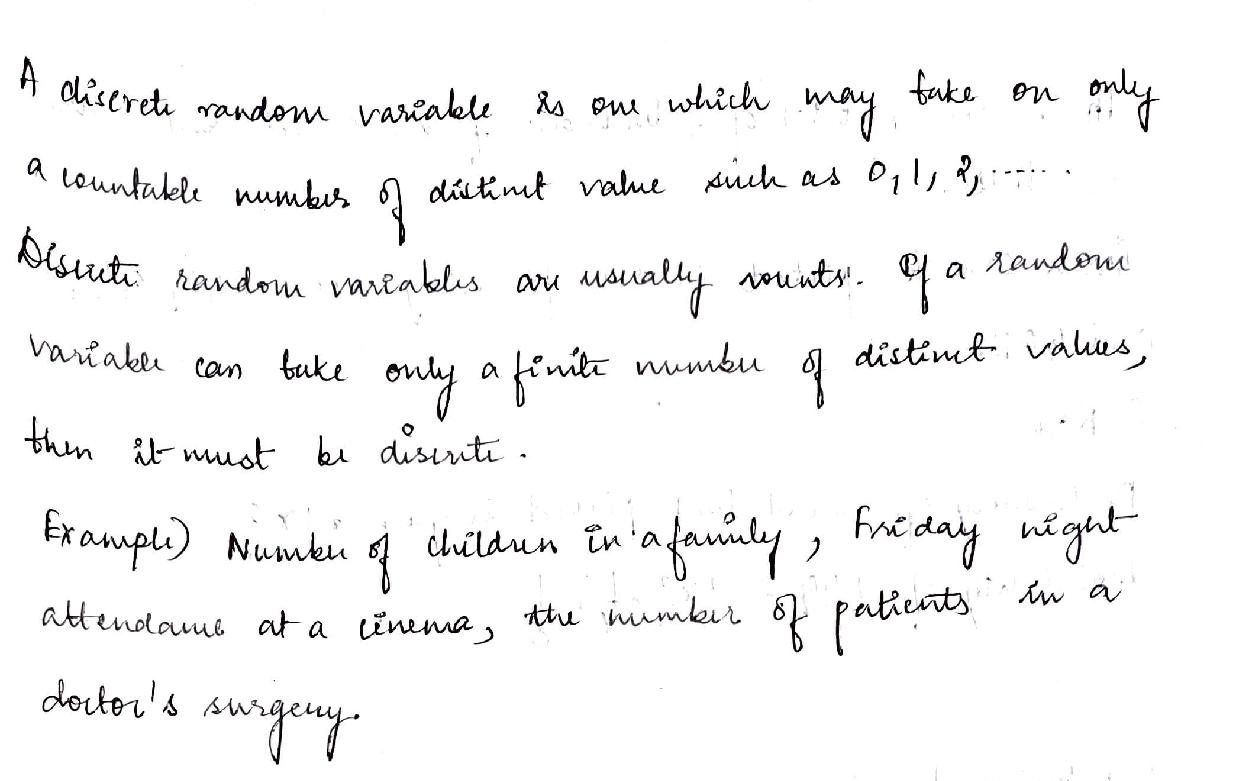 A discrete random variable is one which may take on only
a countable number of distinct value such as 0, 1, 2, ......
Discrete random variables are usually counts. If a random
variable can take only a finite number of distinct values,
then it must be discrete.
Example) Number of children in a family, Friday night
attendance at a cinema, the number of patients in a
doctor's surgery.